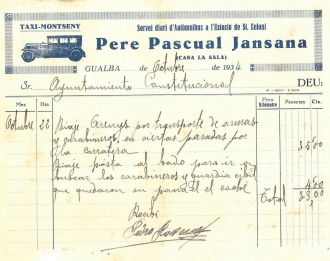 TAXI-MONTSENY
Servei diari d'Autòmnibus a l'Estació de St. Celoni
Pere Pascual Jansana
(CASA LA SALA)
GUALBA de Octubre de 1934
Sr. Ayuntamiento Constitucional DEU:
Mes Dia Preu Kilòmetre Pessetes Cts.
Octubre 22 Viaje Arenys por transporte de armas
y carabineros, en viertas paradas por
la carratera 35 00
Viaje pista al bado para ir
buscar los carabineros y guardia civil
que quedaron en pana el coche 4 00
Total 39 00
Recibí